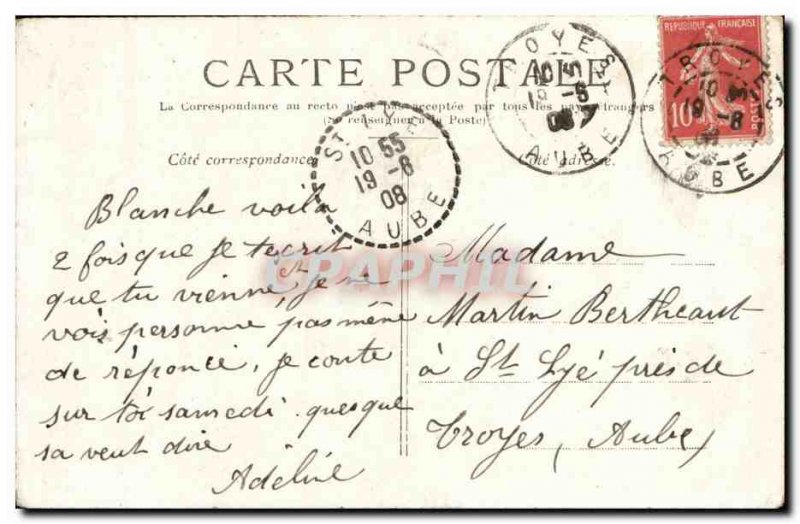 CARTE POSTALE
La Correspondance au recto n'est pas acceptée par tous les pays étrangers
(Se renseigner à la Poste)
Côté correspondance
Côté adresse
RÉPUBLIQUE FRANÇAISE
10
TROYES
10 5
19-6
08
AUBE
TROYES
10 5
19-6
08
AUBE
ST LYÉ
10 55
19-6
08
AUBE
Blanche voila
2 fois que je tecrit
que tu vienne, je ne
vois personne pas même
de réponce, je conte
sur toi samedi quesque
sa veut dire
Adéline
Madame
Martin Bertheaut
à St Lyé près de
Troyes, (Aube)
CPAPHIL